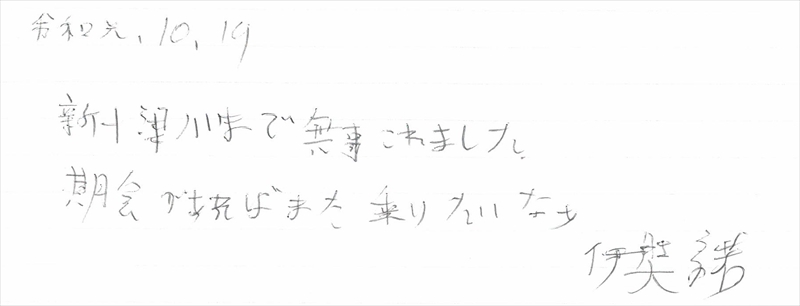 令和元、10、19
新十津川まで無事これました。
期会があればまた乗りたいなぁ
伊 誠